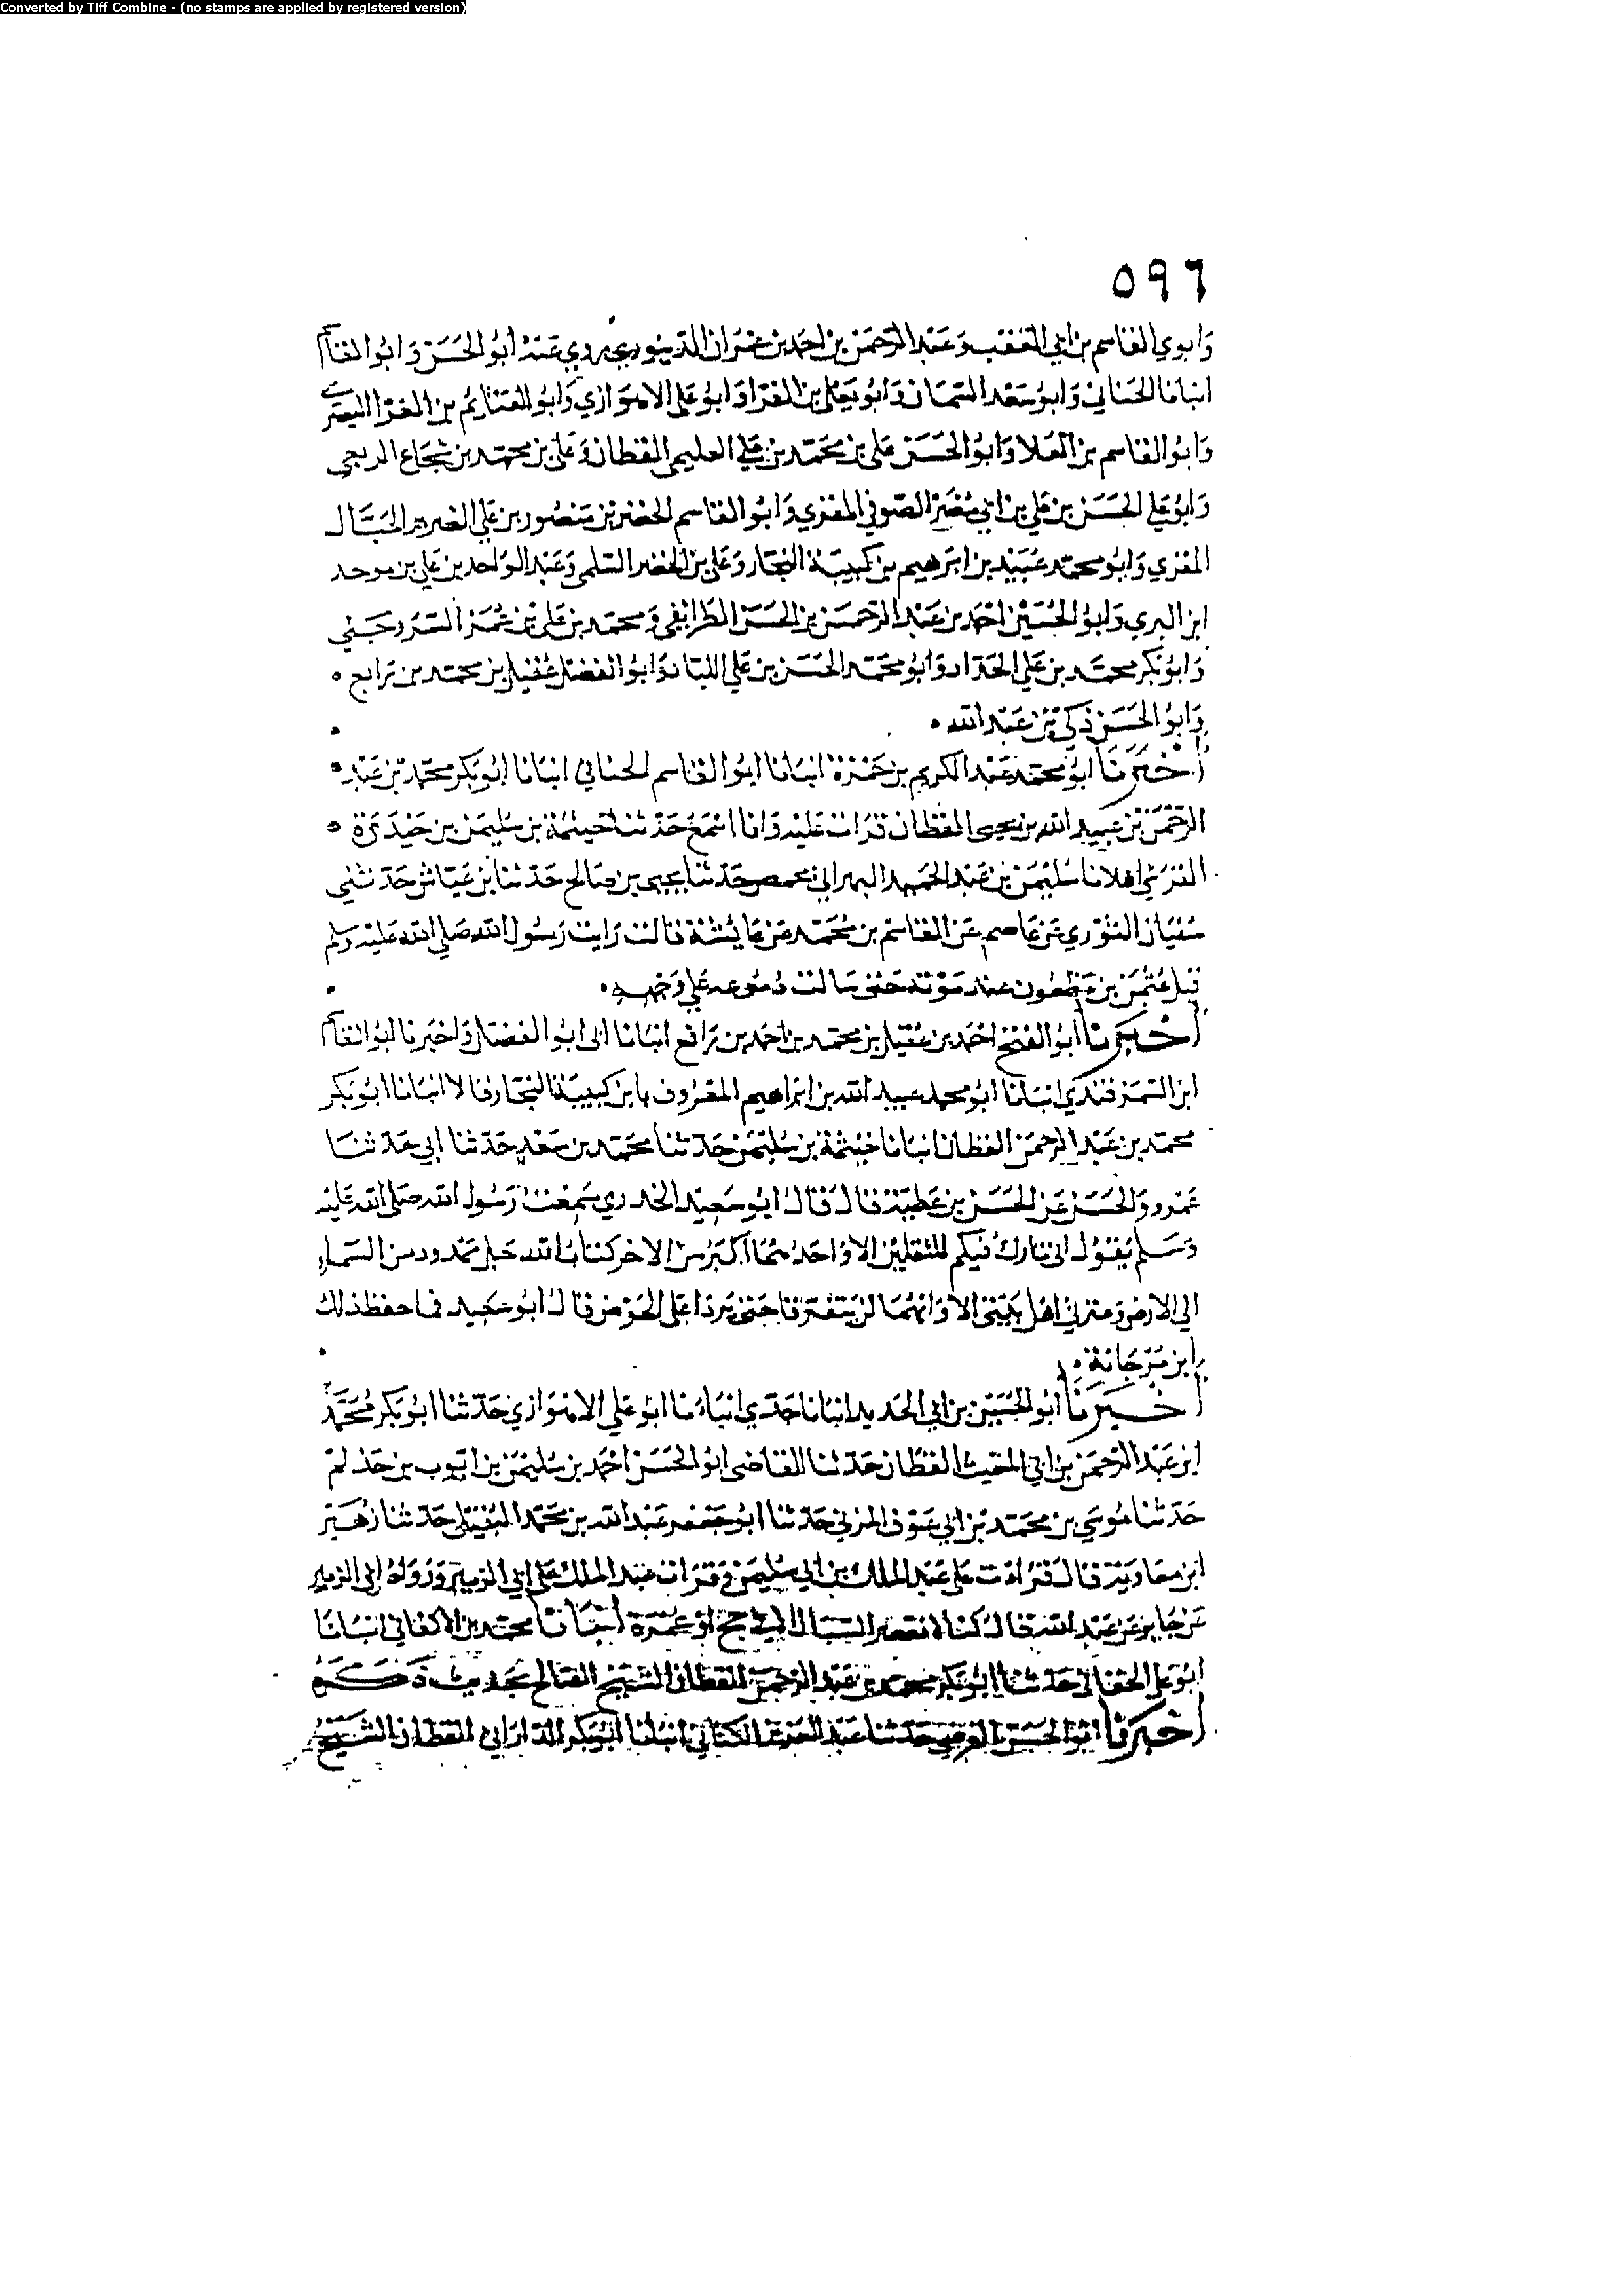 Converted by Tiff Combine - (no stamps are applied by registered version)
٥٩٦
وابوي القاسم بن ابي العقب وعبد الرحمن بن احمد بن عمران الدينوري يروي عنه ابو الحسن وابو القاسم
انبانا الحنائي وابو سعد السمان وابو يعلى بن الفرا وابو علي الاهوازي وابو الغنايم بن الفرا البصري
وابو القاسم بن العلا وابو الحسن علي بن محمد بن علي العليمي القطان وعلي بن محمد بن شجاع الربعي
وابو علي الحسن بن علي بن ابي مضر الصوفي المقري وابو القاسم الخضر بن منصور بن علي الضرير الحبال
المقري وابو محمد عبيد بن ابرهيم بن كبيبة النجار وعلي بن الخضر السلمي وعبد الواحد بن علي بن موحد
ابن البري وابو الحسين احمد بن عبد الرحمن بن الحسن الطرايفي ومحمد بن علي بن عمر السروجني
وابو بكر محمد بن علي الحداد وابو محمد الحسن بن علي اللباد وابو الفضل عقيل بن محمد بن رافع
وابو الحسن زكي بن عبد الله
اخبرنا ابو محمد عبد الكريم بن حمزة انبانا ابو القاسم الحنائي انبانا ابو بكر محمد بن عبد
الرحمن بن عبيد الله بن يحيى القطان قرات عليه وانا اسمع حدثنا خيثمة بن سليمن بن حيدرة
القرشي املانا سليمن بن عبد الحميد البهراني بحمص حدثنا يحيى بن صالح حدثنا ابن عياش حدثني
سفيان الثوري عن عاصم عن القاسم بن محمد عن عايشة قالت رايت رسول الله صلى الله عليه وسلم
قبل عثمن بن مظعون عند موته حتى سالت دموعه علي وجهه
اخبرنا ابو الفتح احمد بن عقيل بن محمد بن احمد بن رافع انبانا ابي ابو الفضل واخبرنا ابو القاسم
ابن السمرقندي انبانا ابو محمد عبيد الله بن ابراهيم المعروف بابن كبيبة النجار قالا انبانا ابو بكر
محمد بن عبد الرحمن القطان انبانا خيثمة بن سليمن حدثنا محمد بن سعد حدثنا ابي حدثنا
عمرو والحسن عن الحسن بن عطية قال قال ابو سعيد الخدري سمعت رسول الله صلى الله عليه
وسلم يقول اني تارك فيكم الثقلين الا واحدهما اكبر من الاخر كتاب الله حبل ممدود من السماء
الي الارض وعترتي اهل بيتي الا وانهما لن يتفرقا حتى يردا على الحوض قال ابو سعيد فما حفظ ذلك
ابن مرجانة
اخبرنا ابو الحسين بن ابي الحديد انبانا جدي انبانا ابو علي الاهوازي حدثنا ابو بكر محمد
ابن عبد الرحمن بن ابي المغيث القطان حدثنا القاضي ابو الحسن احمد بن سليمن بن ايوب بن حذلم
حدثنا موسي بن محمد بن ابي عوف المزني حدثنا ابو جعفر عبد الله بن محمد النفيلي حدثنا زهير
ابن معاوية قال قرات على عبد الملك بن ابي سليمن وقرات عبد الملك على ابي الزبير ورواه ابي الزبير
عن جابر عن عبد الله قال كنا لا نقصر السبال الا في حج او عمرة انبانا محمد بن الاكفاني انبانا
ابو علي الحنائي حدثنا ابو بكر محمد بن عبد الرحمن القطان الشيخ الصالح بحديث ذكره
اخبرنا ابو الحسن الفرضي حدثنا عبد العزيز الكتاني انبانا ابو بكر الداراني القطان الشيخ